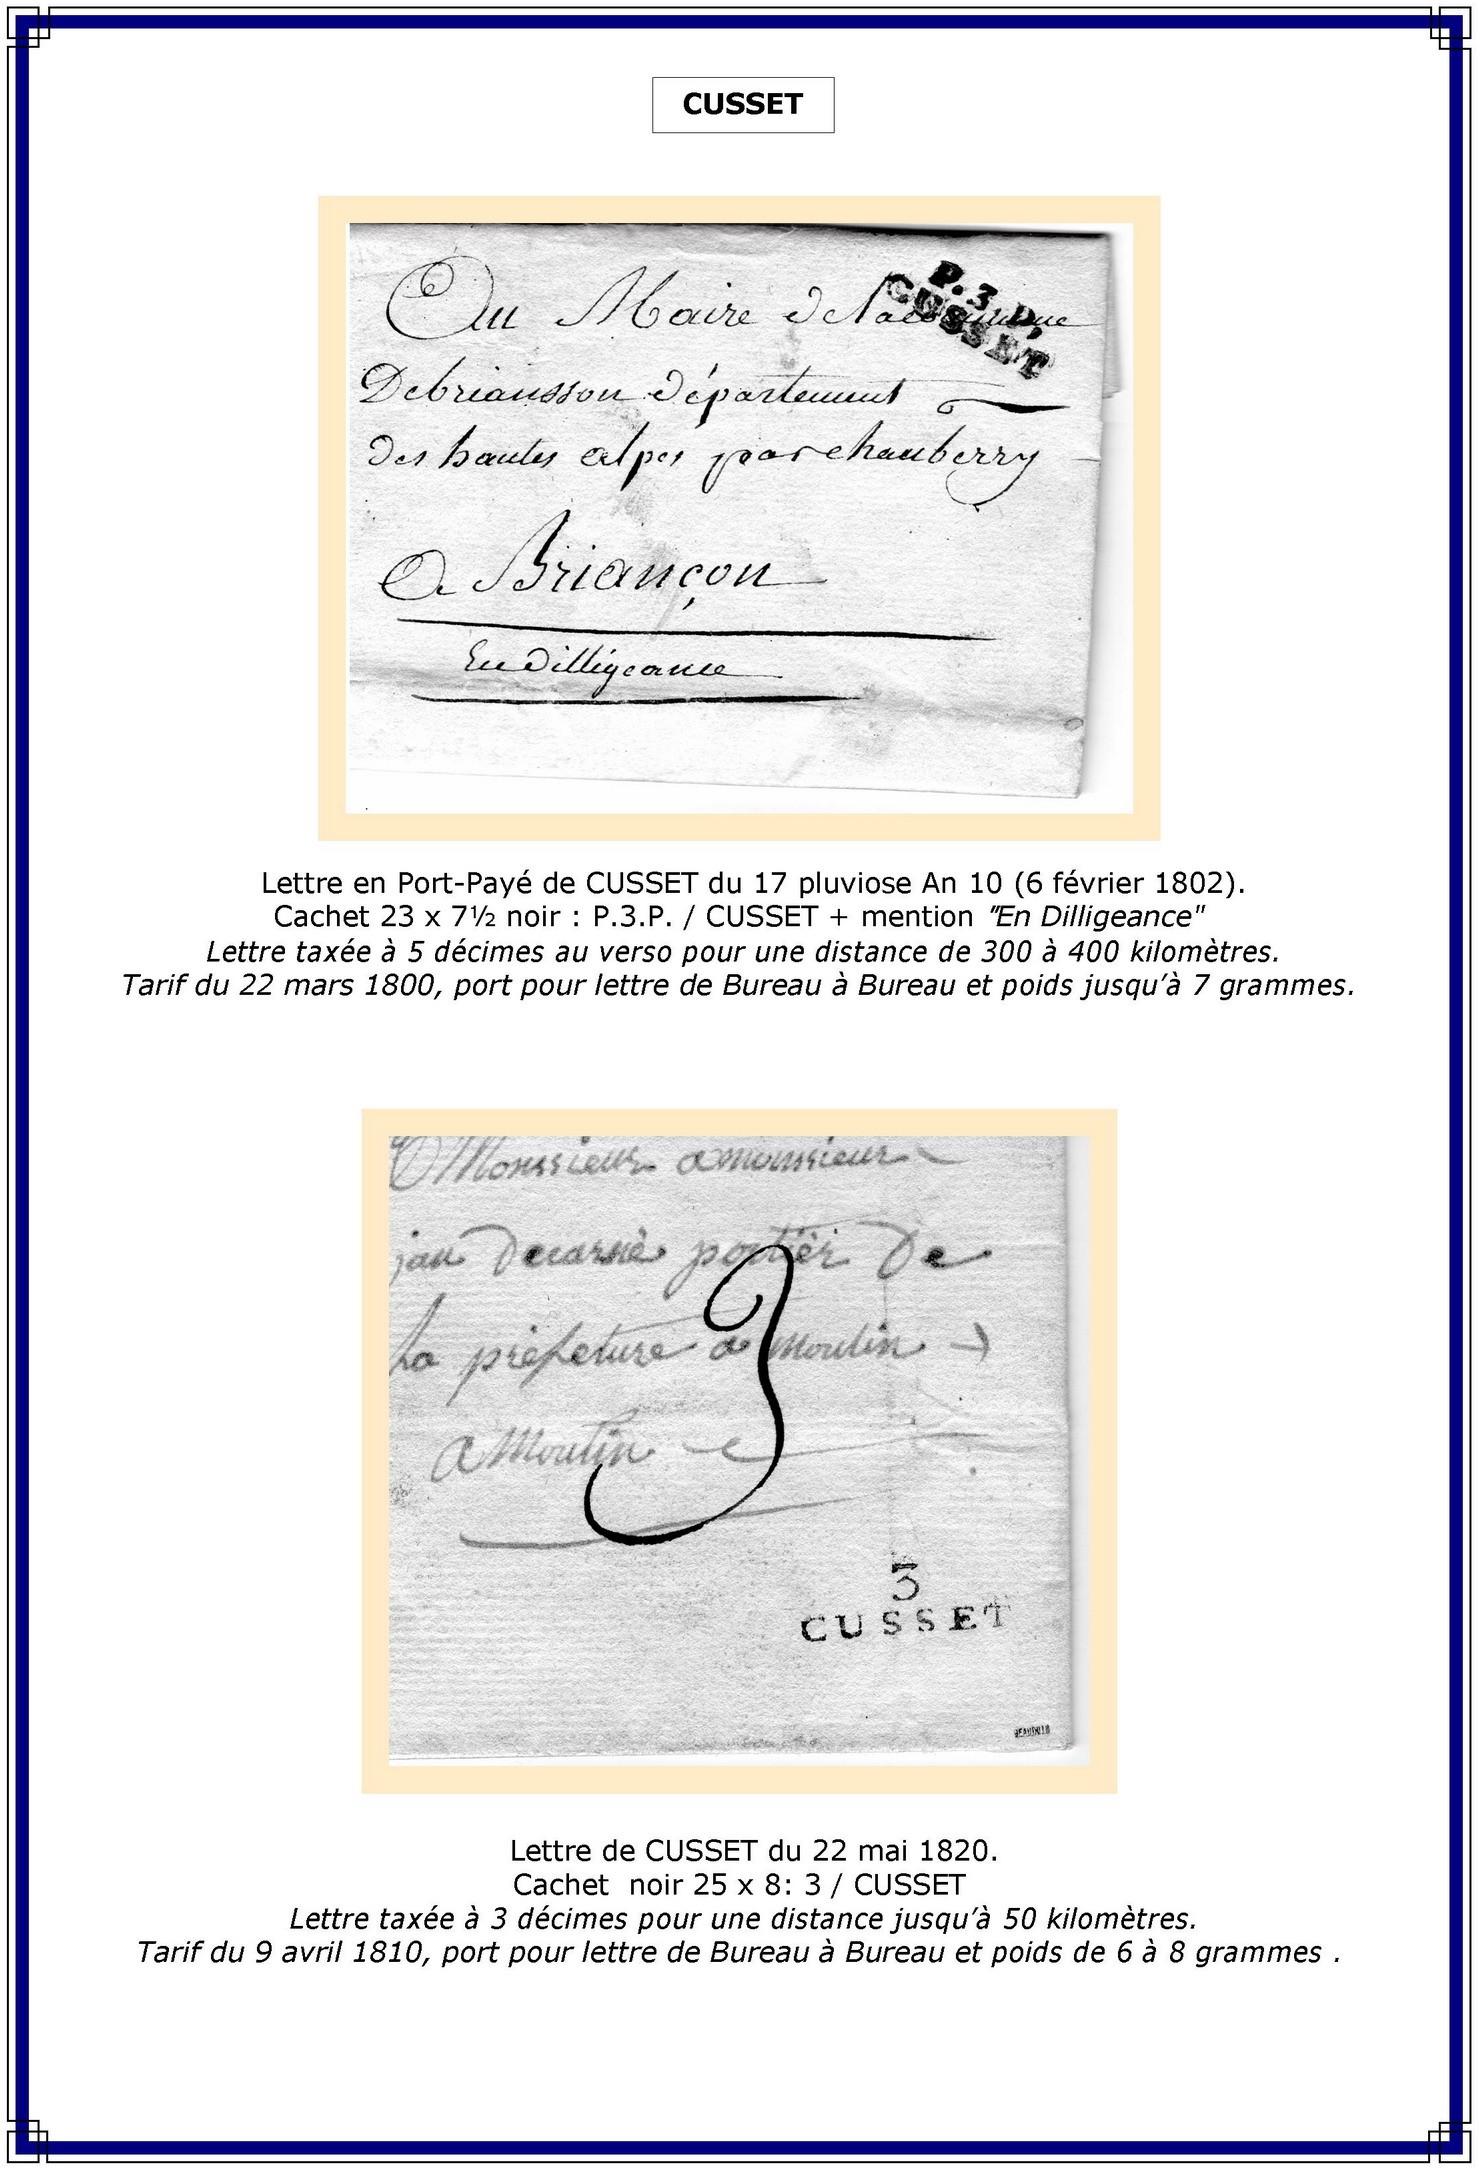 CUSSET
P.3.P.
CUSSET
Au Maire de la commune
Debriansson département
des hautes alpes par chauberry
A Briançon
En Dilligeance
Lettre en Port-Payé de CUSSET du 17 pluviose An 10 (6 février 1802).
Cachet 23 x 7½ noir : P.3.P. / CUSSET + mention "En Dilligeance"
Lettre taxée à 5 décimes au verso pour une distance de 300 à 400 kilomètres.
Tarif du 22 mars 1800, port pour lettre de Bureau à Bureau et poids jusqu’à 7 grammes.
A Monssieur amonssieur
jan Decarnè portièr De
La prèfeture de Moulin
A Moulin
3
3
CUSSET
Lettre de CUSSET du 22 mai 1820.
Cachet  noir 25 x 8: 3 / CUSSET
Lettre taxée à 3 décimes pour une distance jusqu’à 50 kilomètres.
Tarif du 9 avril 1810, port pour lettre de Bureau à Bureau et poids de 6 à 8 grammes .